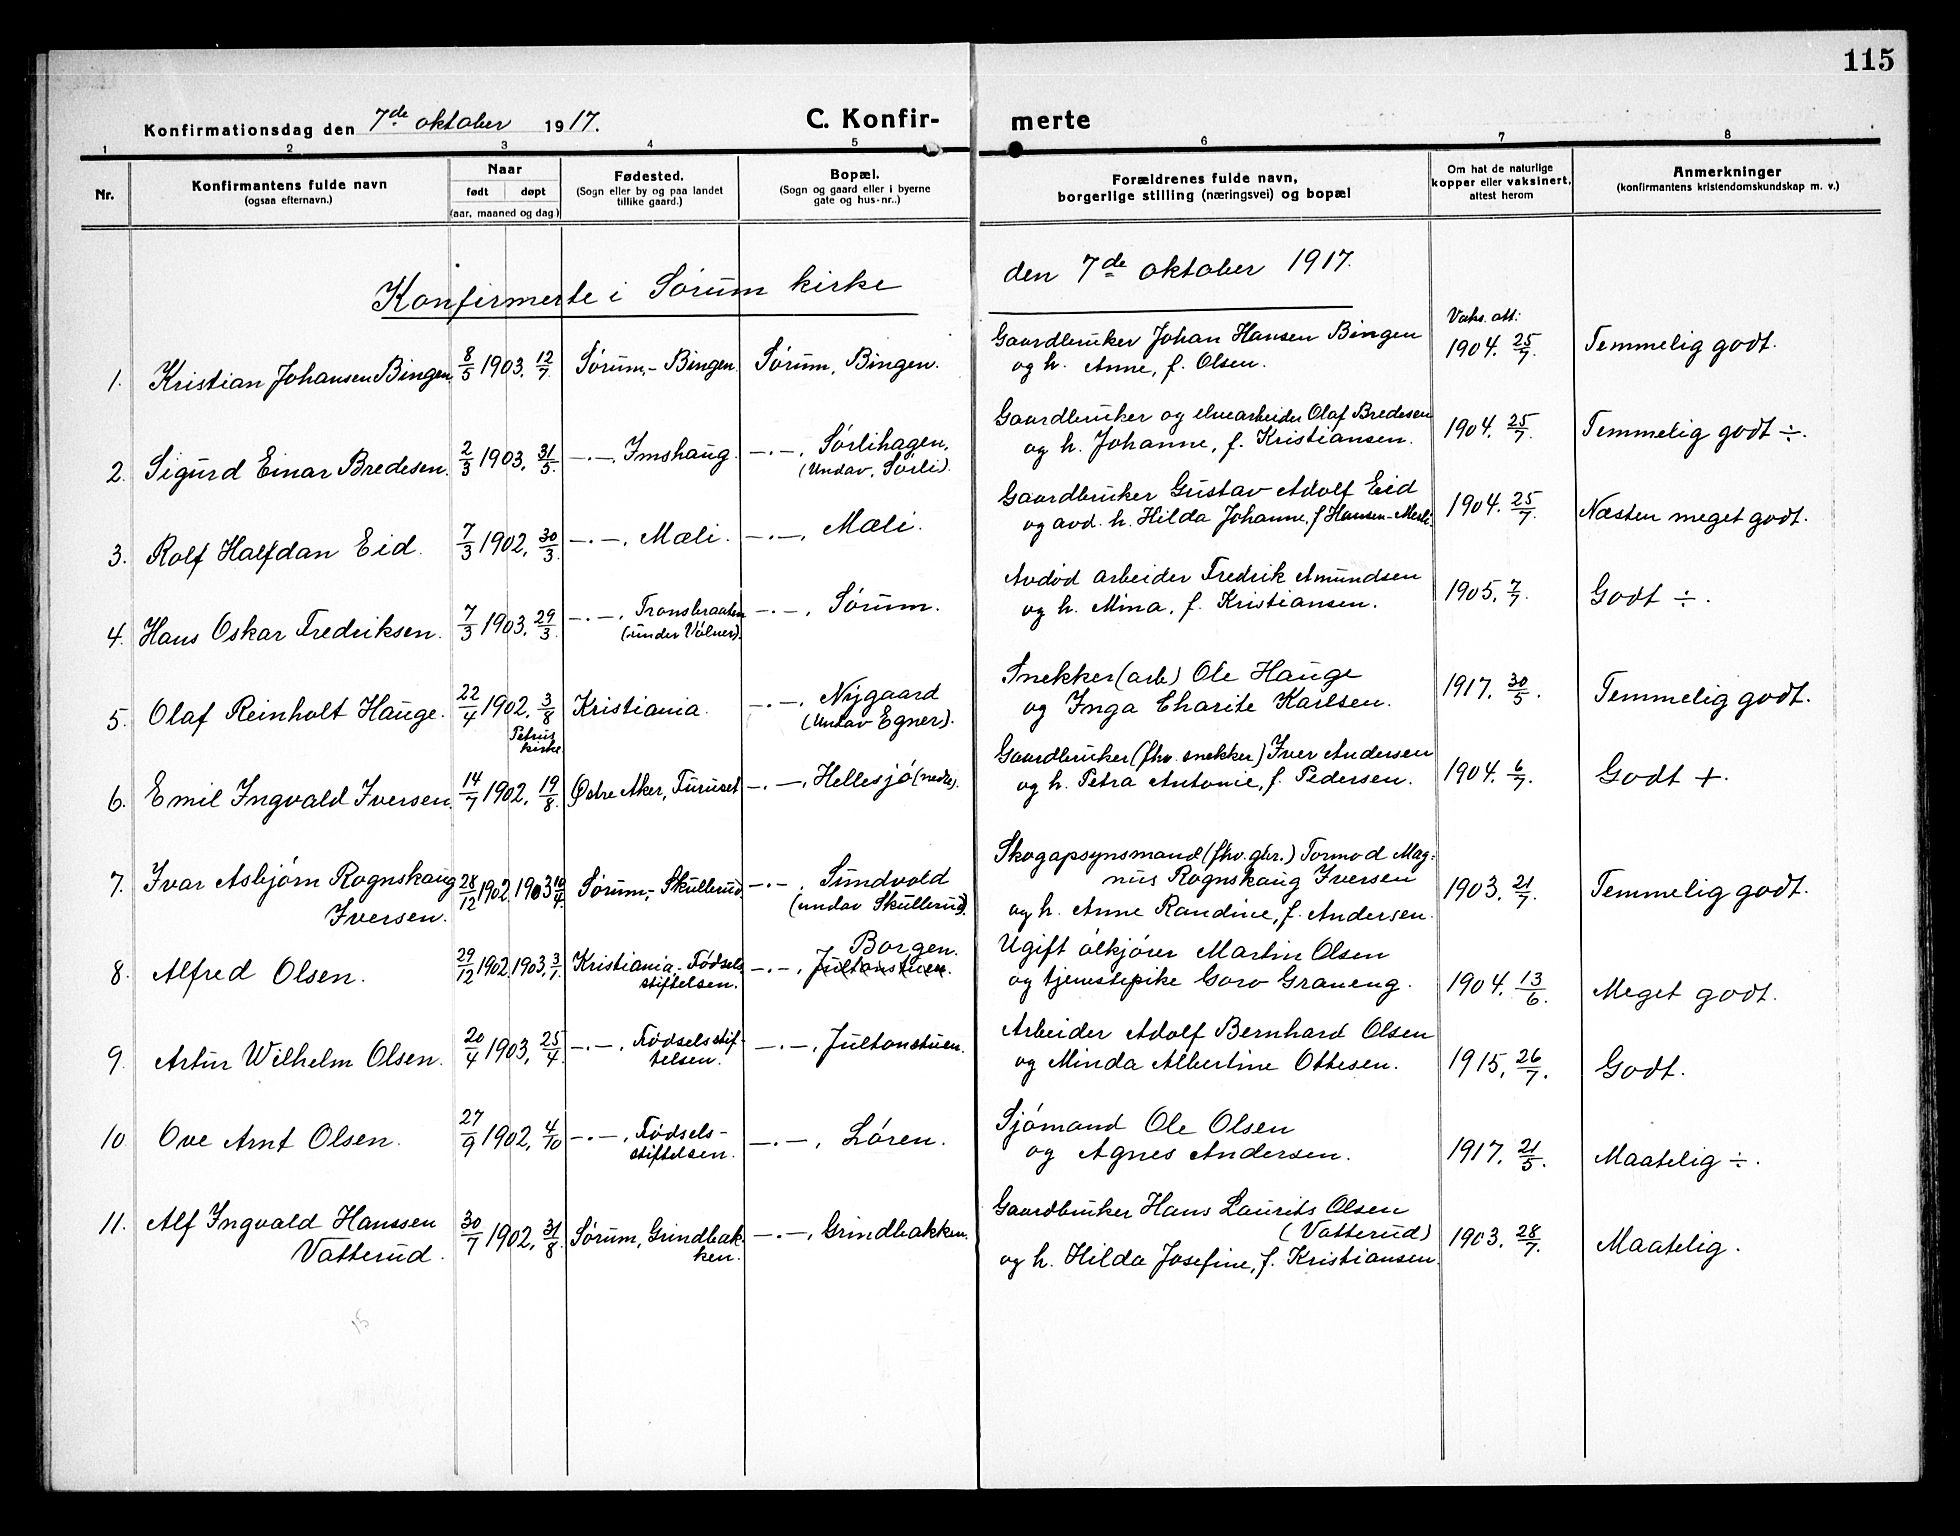 115
Konfirmationsdag den 7de oktober 1917.
C. Konfirmerte
1 2 3 4 5 6 7 8
Nr.
Konfirmantens fulde navn
(ogsaa efternavn.)
Naar
født døpt
(aar, maaned og dag)
Fødested.
(Sogn eller by og paa landet
tillike gaard.)
Bopæl.
(Sogn og gaard eller i byerne
gate og hus-nr..)
Forældrenes fulde navn,
borgerlige stilling (næringsvei) og bopæl
Om hat de naturlige
kopper eller vaksinert,
attest herom
Anmerkninger
(konfirmantens kristendomskundskap m. v.)
Konfirmerte i Sørum kirke den 7de oktober 1917.
Vaks. att:
1. Kristian Johansen Bingen 8/5 1903. 12/7 Sørum,- Bingen. Sørum, Bingen. Gaardbruker Johan Hansen Bingen 1904. 25/7. Temmelig godt.
og h. Anne, f. Olsen.
2. Sigurd Einar Bredesen. 2/3 1903. 31/5. -.-. Imshaug. -.-. Sørlihagen. Gaardbruker og elvearbeider Olaf Bredesen 1904. 25/7. Temmelig godt ÷.
(Undav. Sørli). og h. Johanne, f. Kristiansen.
3. Rolf Halfdan Eid. 7/3 1902. 30/3. -.-. Mæli. -.-. Mæli. Gaardbruker Gustav Adolf Eid 1904. 25/7. Næsten meget godt.
og avd. h. Hilda Johanne, f Hansen-Mæli.
4. Hans Oskar Fredriksen. 7/3 1903. 29/3. -.-. Tronsbraaten -.-. Sørum. Avdød arbeider Fredrik Amundsen 1905. 7/7. Godt ÷.
(under Vølner). og h. Mina, f. Kristiansen.
5. Olaf Reinholt Hauge. 22/4 1902. 3/8 Kristiania. -.-. Nygaard Snekker (arb) Ole Hauge 1917. 30/5. Temmelig godt.
Petrus
kirke (Undav Egner). og Inga Charite Karlsen.
6. Emil Ingvald Iversen. 14/7 1902. 19/8. Østre Aker, Furuset -.-. Hellesjø (nedre). Gaardbruker (fhv. snekker) Iver Andersen 1904. 6/7. Godt +.
og h. Petra Antonie, f. Pedersen.
7. Ivar Asbjørn Rognskaug 28/12 1902. 1903 10/4. Sørum,- Skullerud -.-. Sundvold Skogopsynsmand (fhv. gbr.) Tormod Mag-
Iversen. (undav Skullerud). nus Rognskaug Iversen 1903. 21/7. Temmelig godt.
og h. Anne Randine, f. Andersen.
8. Alfred Olsen. 29/12 1902. 1903. 3/1. Kristiania - Fødsels- Borgen. Ugift ølkjører Martin Olsen
stiftelsen. -.-. Jultonstuen. og tjenestepike Goro Graneng. 1904. 13/6. Meget godt.
9. Artur Wilhelm Olsen. 20/4 1903. 25/4. -.-. Fødselsstif- -.-. Jultonstuen. Arbeider Adolf Bernhard Olsen
telsen. og Minda Albertine Ottesen. 1915. 26/7. Godt.
10 Ove Arnt Olsen. 27/9 1902. 4/10 -.-. Fødsels- -.-. Løren. Sjømand Ole Olsen
stiftelsen. og Agnes Andersen. 1917. 21/5. Maatelig ÷.
11. Alf Ingvald Hanssen 30/7 1902. 31/8. Sørum, Grindbak- -.-. Grindbakken. Gaardbruker Hans Laurits Olsen
Vatterud. ken. (Vatterud) 1903. 28/7. Maatelig.
og h. Hilda Josefine, f. Kristiansen.